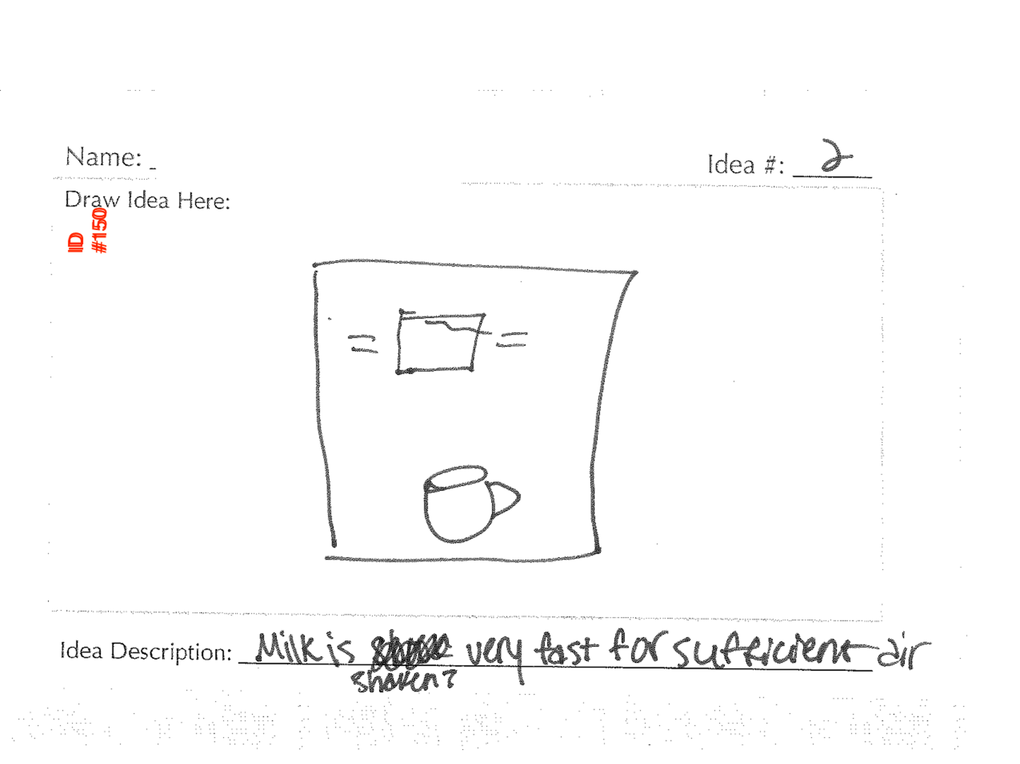 Name: _
Idea #: 2
Draw Idea Here:
ID
#150
Idea Description: Milk is very fast for sufficient air
shaken?